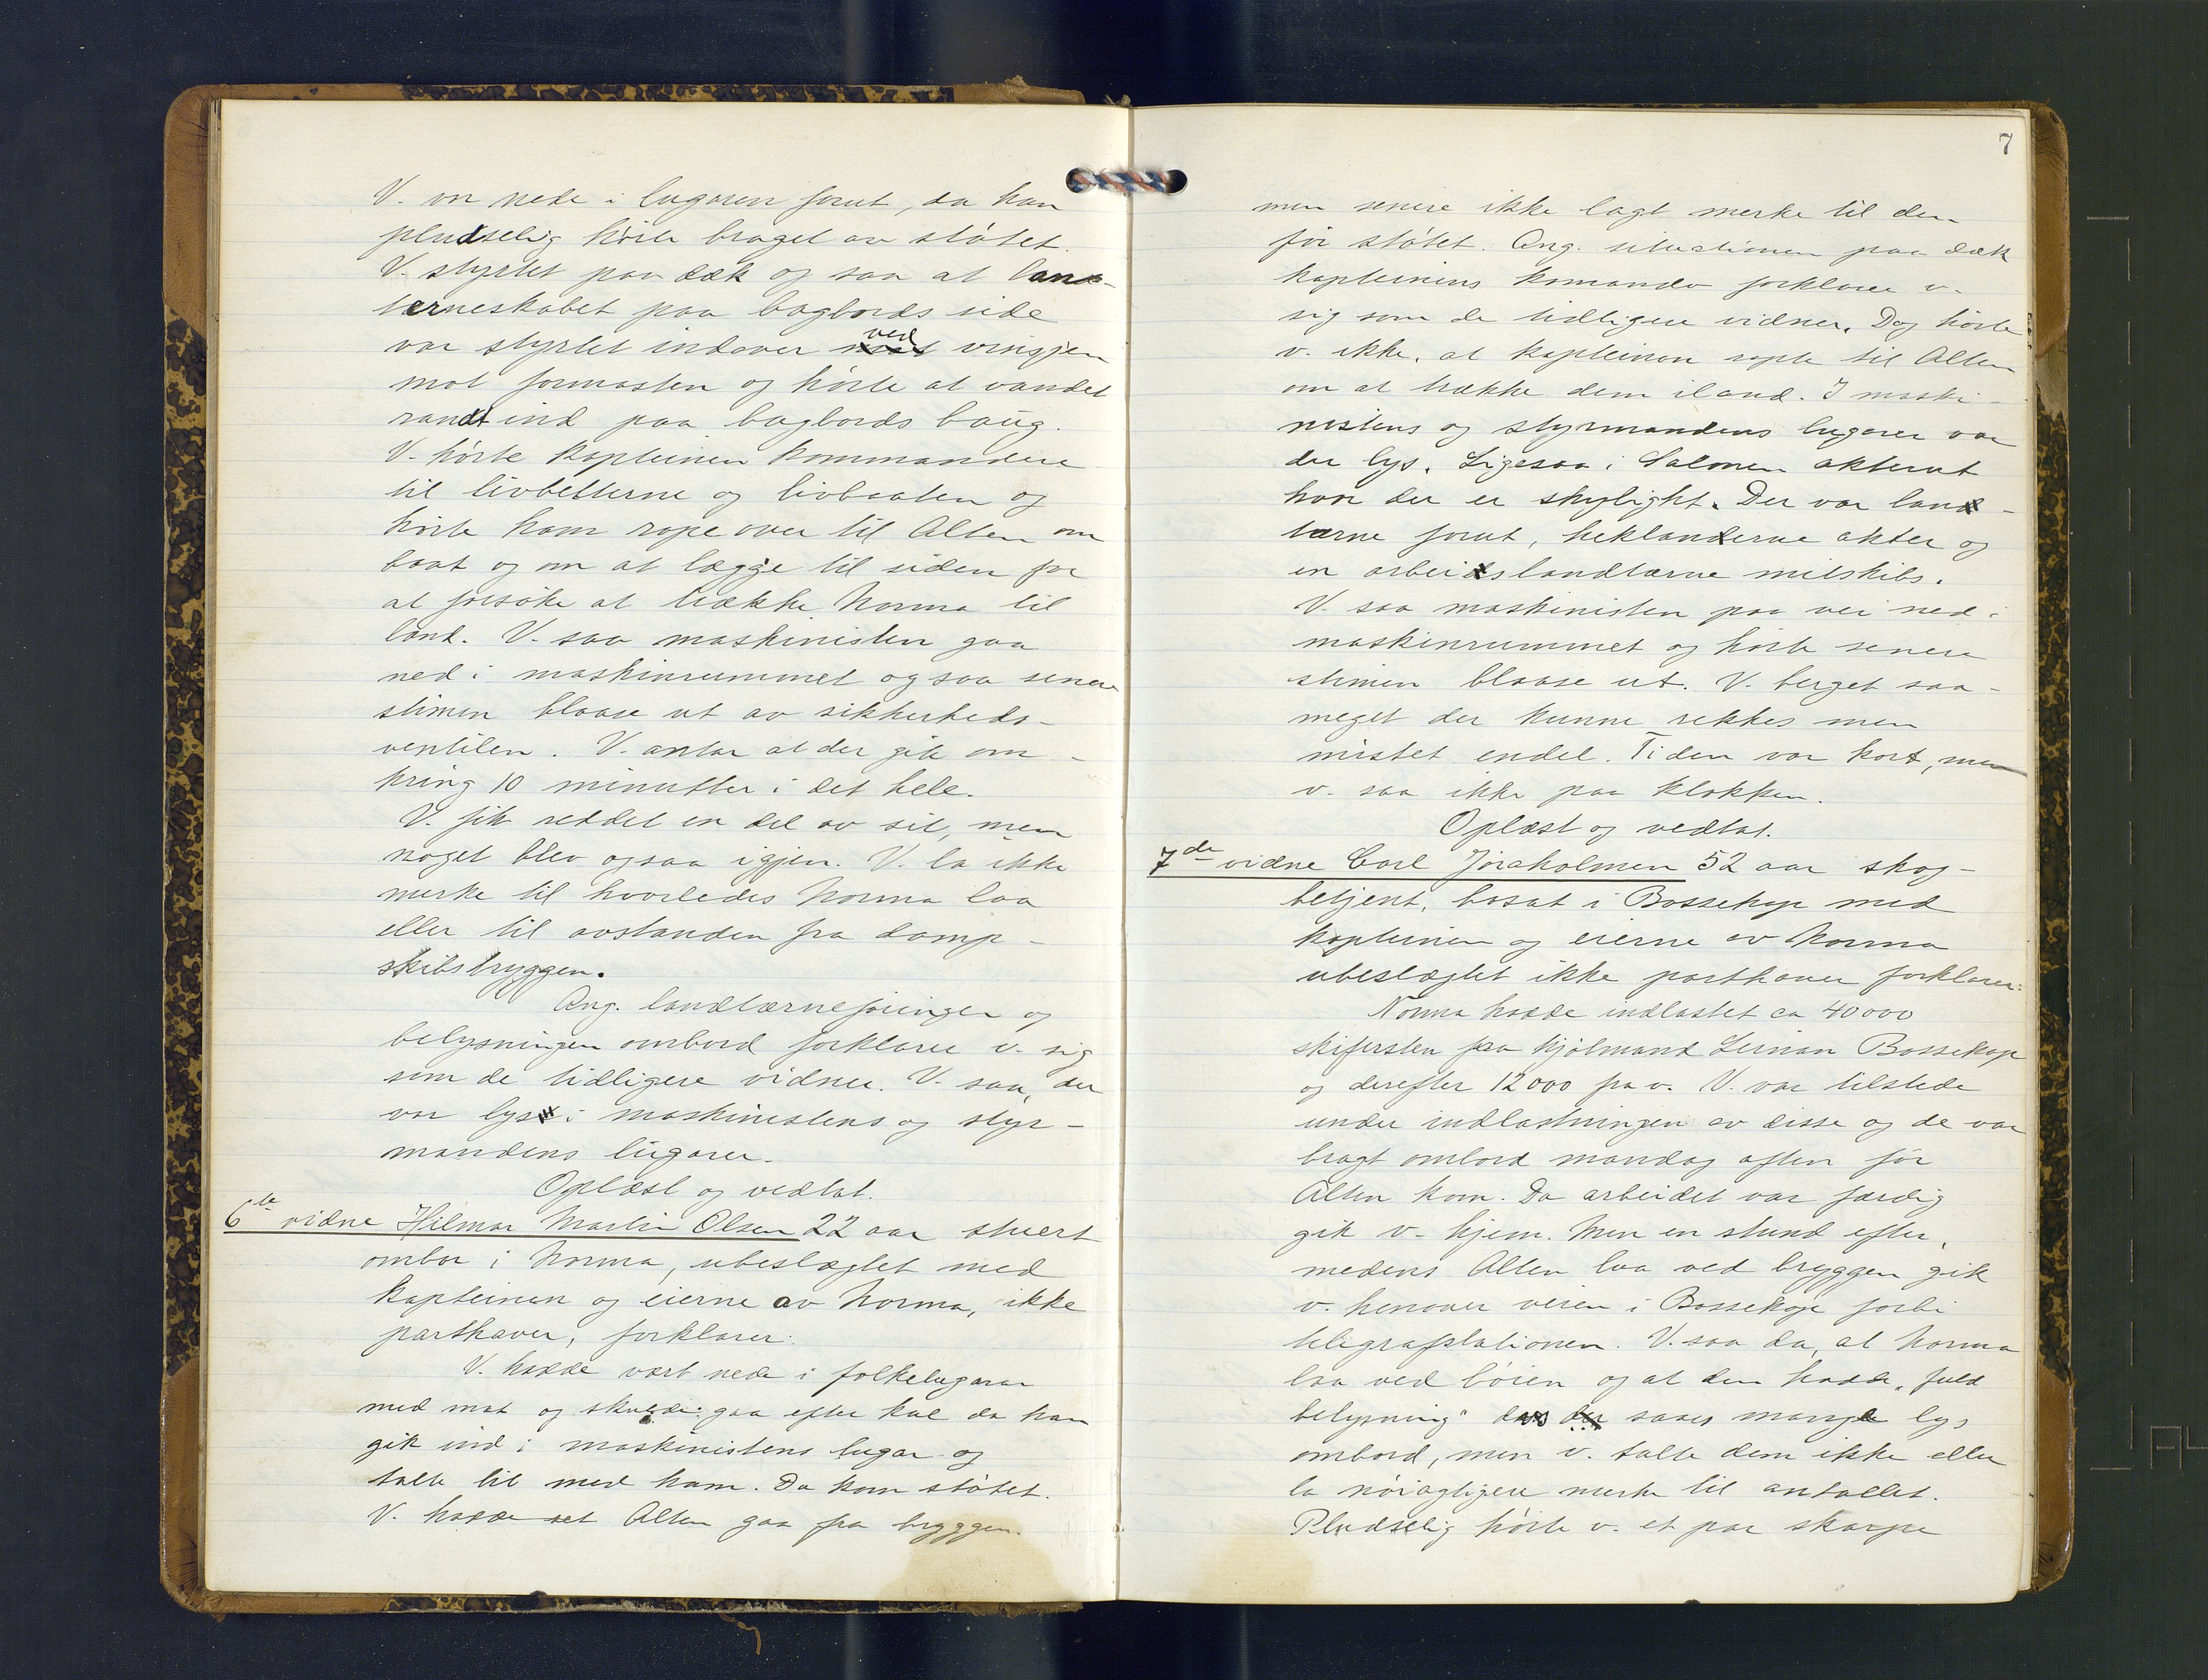 V. var nede i lugaren forut, da han
pludselig hörte braget av stötet.
V. styrtet paa dæk og saa at lan-
terneskabet paa bagbords side
var styrtet indover ved vinsjen
mot formasten og hörte at vandet
randt ind paa bagbords baug.
V. hörte kapteinen kommandere
til livbelterne og livbaaten og
hörte ham rope over til Alten om
baat og om at lægge til siden for
at forsöke at trække Norma til
land. V. saa maskinisten gaa
ned i maskinrummet og saa senere
stimen blaase ut av sikkerheds-
ventilen. V. antar at der gik om-
kring 10 minutter i det hele.
V. fik reddet en del av sit, men
noget blev ogsaa igjen. V. la ikke
merke til hvorledes Norma laa
eller til avstanden fra damp-
skibsbryggen.
Ang. landtærneföringen og
belysningen ombord forklarer v. sig
som de tidligere vidner. V. saa, der
var lys i maskinistens og styr-
mandens lugarer.
Oplæst og vedtat.
6te vidne Hilmar Martin Olsen 22 aar stuert
ombor i Norma, ubeslægtet med
kapteinen og eierne av Norma, ikke
parthaver, forklarer:
V. hadde vært nede i folkelugaren
med mat og skulde gaa efter kul da han
gik ind i maskinistens lugar og
talte litt med ham. Da kom stötet.
V. hadde set Alten gaa fra bryggen.
7
men senere ikke lagt merke til den
för stötet. Ang. situationen paa dæk
kapteinens komando forklarer v.
sig som de tidligere vidner. Dog hörte
v. ikke, at kapteinen ropte til Alten
om at trække dem iland. I maski-
nistens og styrmandens lugarer var
der lys. Ligesaa i Salonen akterut
hvor der er skylight. Der var lan-
tærne forut, heklanterne akter og
en arbeidslandtærne mitskibs.
V. saa maskinisten paa vei ned i
maskinrummet og hörte senere
stimen blaase ut. V. berget saa-
meget der kunne rekkes men
mistet endel. Tiden var kort, men
v. saa ikke paa klokken.
Oplæst og vedtat.
7de vidne Carl Jöraholmen 52 aar skog-
betjent, bosat i Bossekop med
kapteinen og eierne av Norma
ubeslægtet ikke parthaver forklarer:
Norma hadde indlastet ca 40000
skifersten fra Bossekop
og derefter 12000 fra v. V. var tilstede
under indlastningen av disse og de var
bragt ombord mandag aften för
Alten kom. Da arbeidet var færdig
gik v. hjem. Men en stund efter,
medens Alten laa ved bryggen gik
v. henover veien i Bossekop forbi
telegrafstationen. V. saa da, at Norma
laa ved böien og at den hadde "fuld
belysning" der saaes mange lys
ombord, men v. talte dem ikke eller
la nöiagtigere merke til antallet.
Pludselig hörte v. et par skarpe